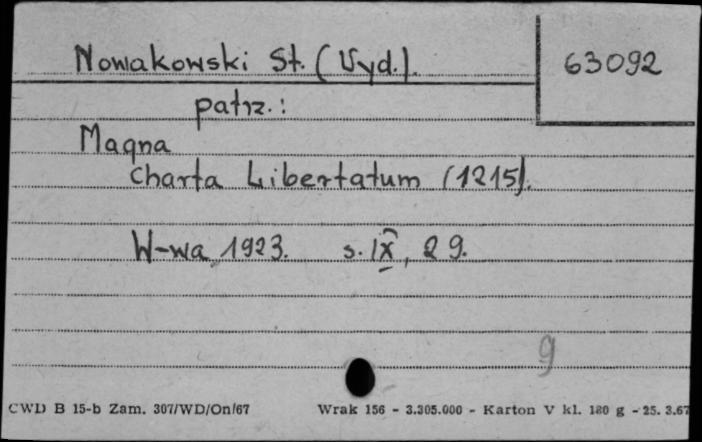 Nowakowski St. (Wyd.).
63092
patrz.:
Magna
Charta Libertatum (1215).
W-wa 1923. s. IX, 29.
9
CWD B 15-b Zam. 307/WD/On/67 Wrak 156 - 3.305.000 - Karton V kl. 180 g - 25. 3.67